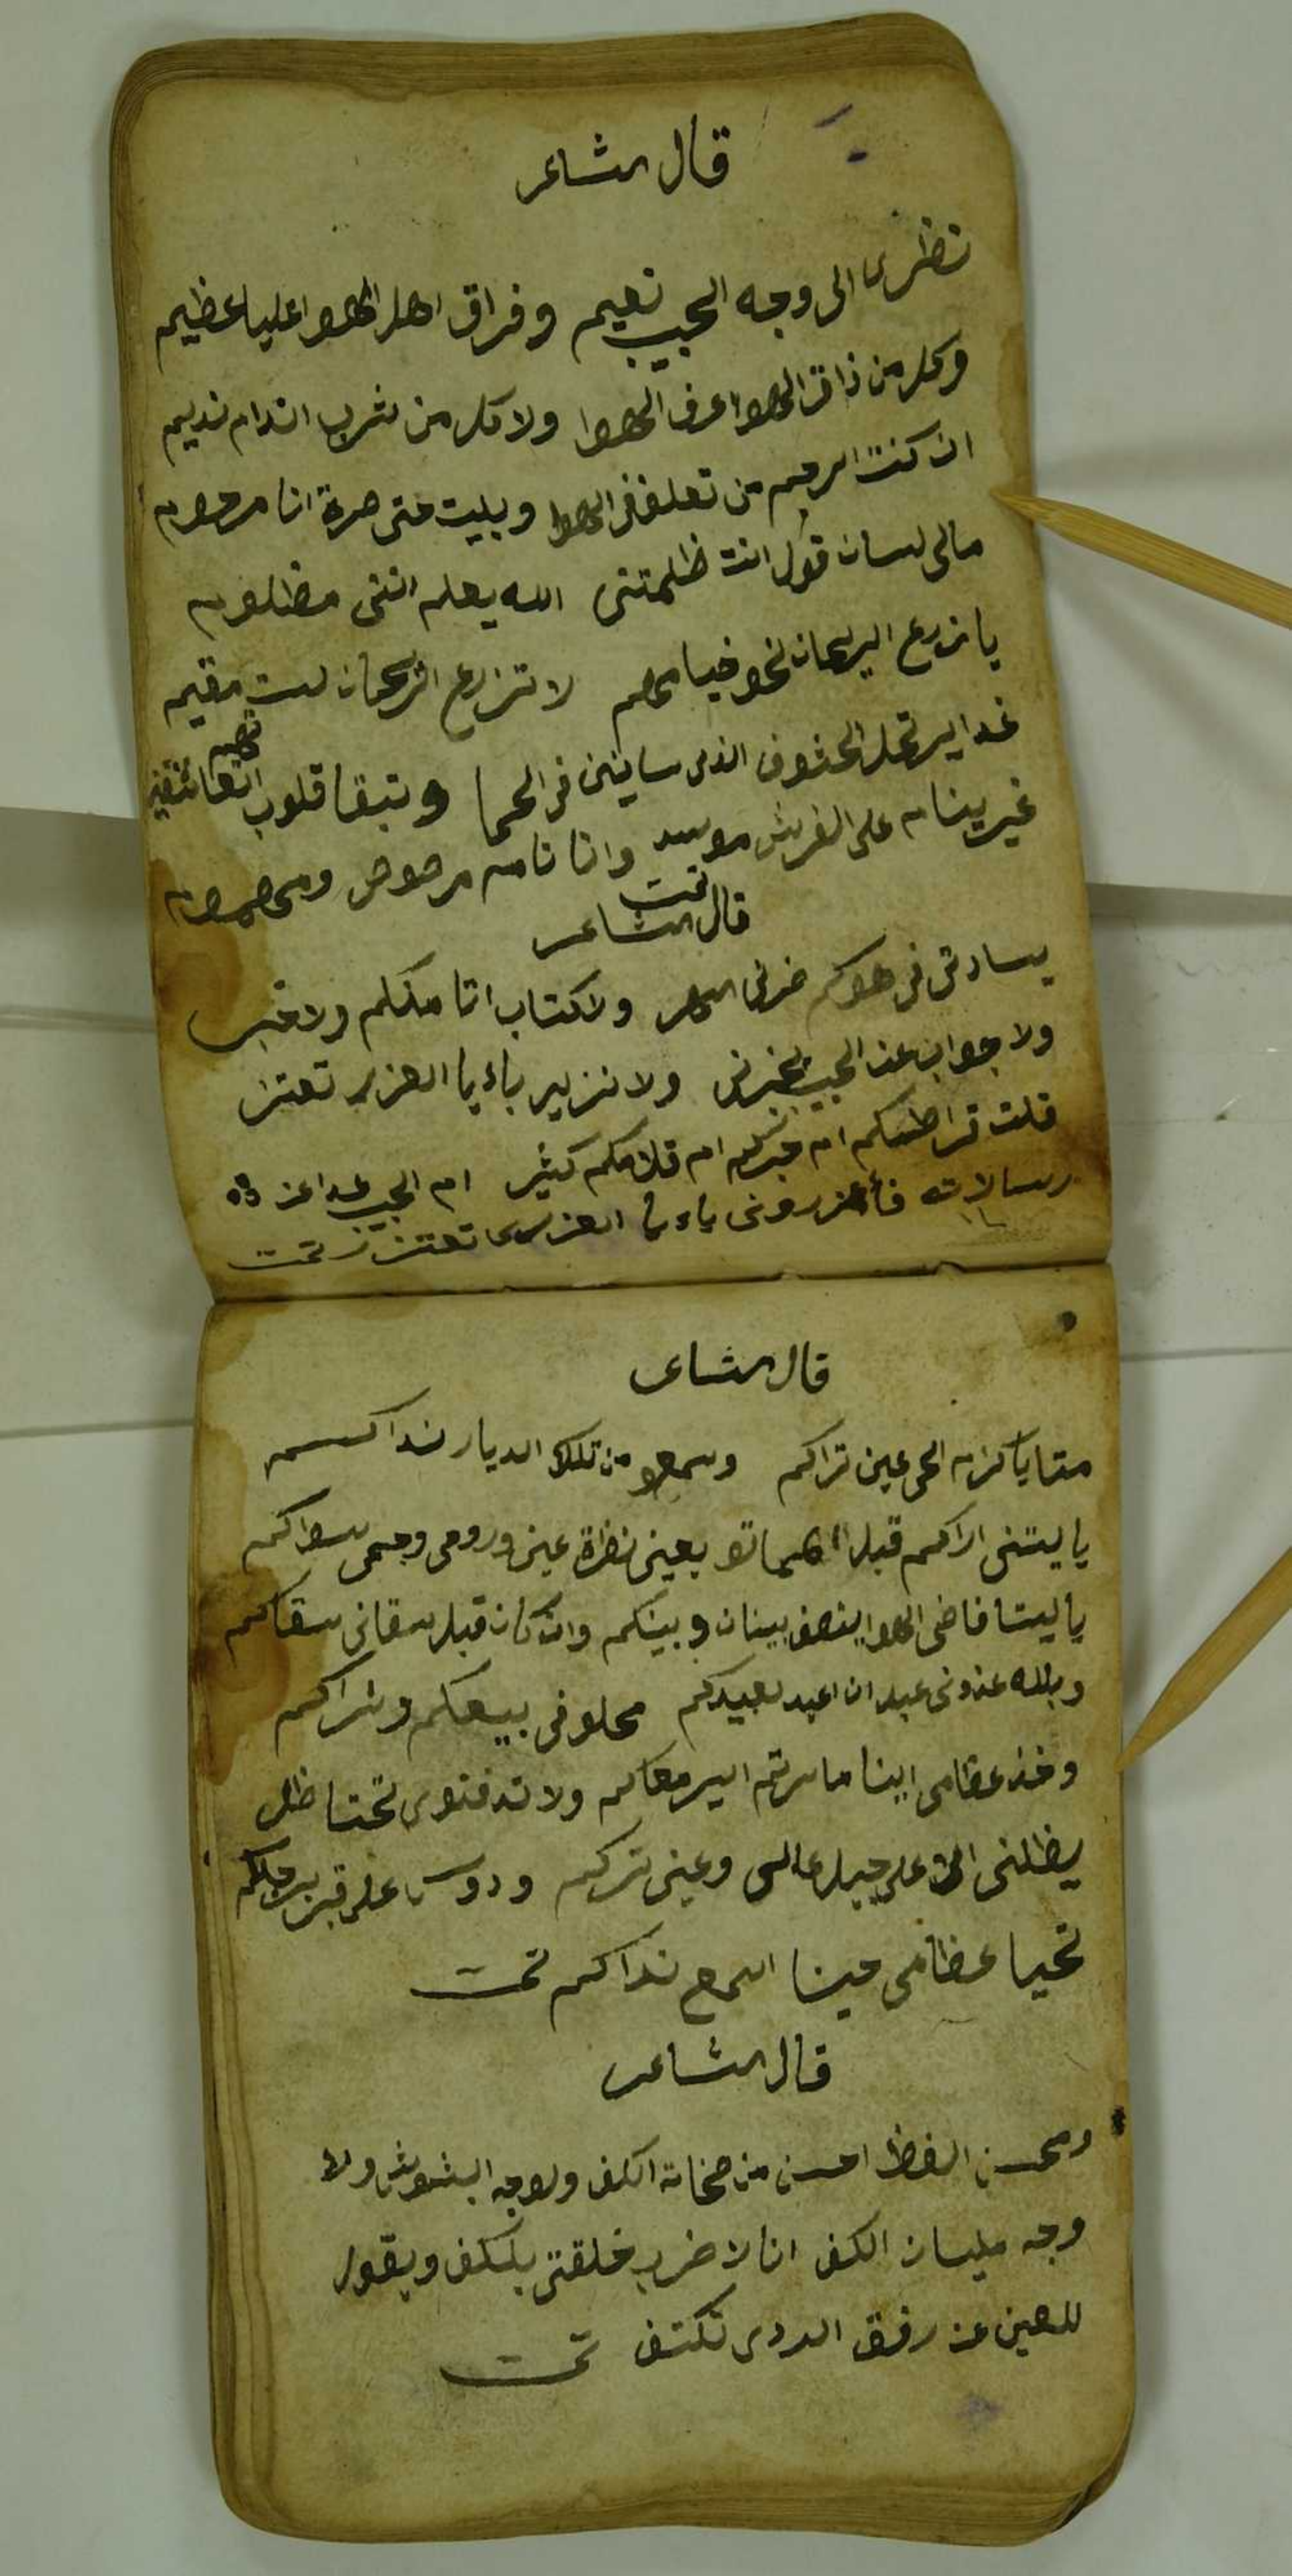 قال الشاعر
نظري الى وجه الحبيب نعيم وفراق اهل الهوا عليا عظيم
وكل من ذاق الهوا عرف الهوا ولا كل من شرب المدام نديم
ان كنت ارحم من تعلق في الهوا وبليت حتى صرة انا مرحوم
مالى لسان قول انت ظلمتنى الله يعلم اننى مظلوم
يا زرع الريحان نحو خيامهم لا تزرع الريحان لست مقيم
غدا يرتحل الذى ساينين في الحما وتبقا قلوب
غير ينام على الفرش موسد وانا نام مرصوص ومحموم
تمت
قال الشاعر
يسادتى فى هوكم ضرنى السهر ولا كتاب اتا منكم ولا خبر
ولا جواب عن الحبيب يخبرنى ولا نزير باء يا العزير تعتز
قلت قراطسكم ام حبركم ام قلامكم كثير ام الحبيب غدا عن
رسالات فأعزرونى ياء يا العزيرى تعتزز تمت
قال الشاعر
متا يا كرام الحى عين تراكم وسمعو من تلك الديار نداكم
يا ليتنى اراكم قبل الممات بعينى نظرة عين وروحى وجسمى سواكم
يا ليتا قاضى الهوا ينصف بينان وبينكم وان كان قبل سقانى سقاكم
وبلله عدونى عبد ان اعبد لعبيدكم محلو فى بيعكم وشراكم
وخذ عظامى اينما سرتم اسير معاكم ولا تدفنوى تحتا ظل
يظلنى الا على جبل عالى وعينى تركم ودوس على قبر برجلكم
تحيا عظامى حينا اسمع نداكم تمت
قال الشاعر
ومحسن الفظ احسن من صخات الكف ولوجه البشوش ولا
وجه مليان الكف انا لاضرب خلقتى بلكف ويقول
للعين عن رفق الردى تكتف تمت